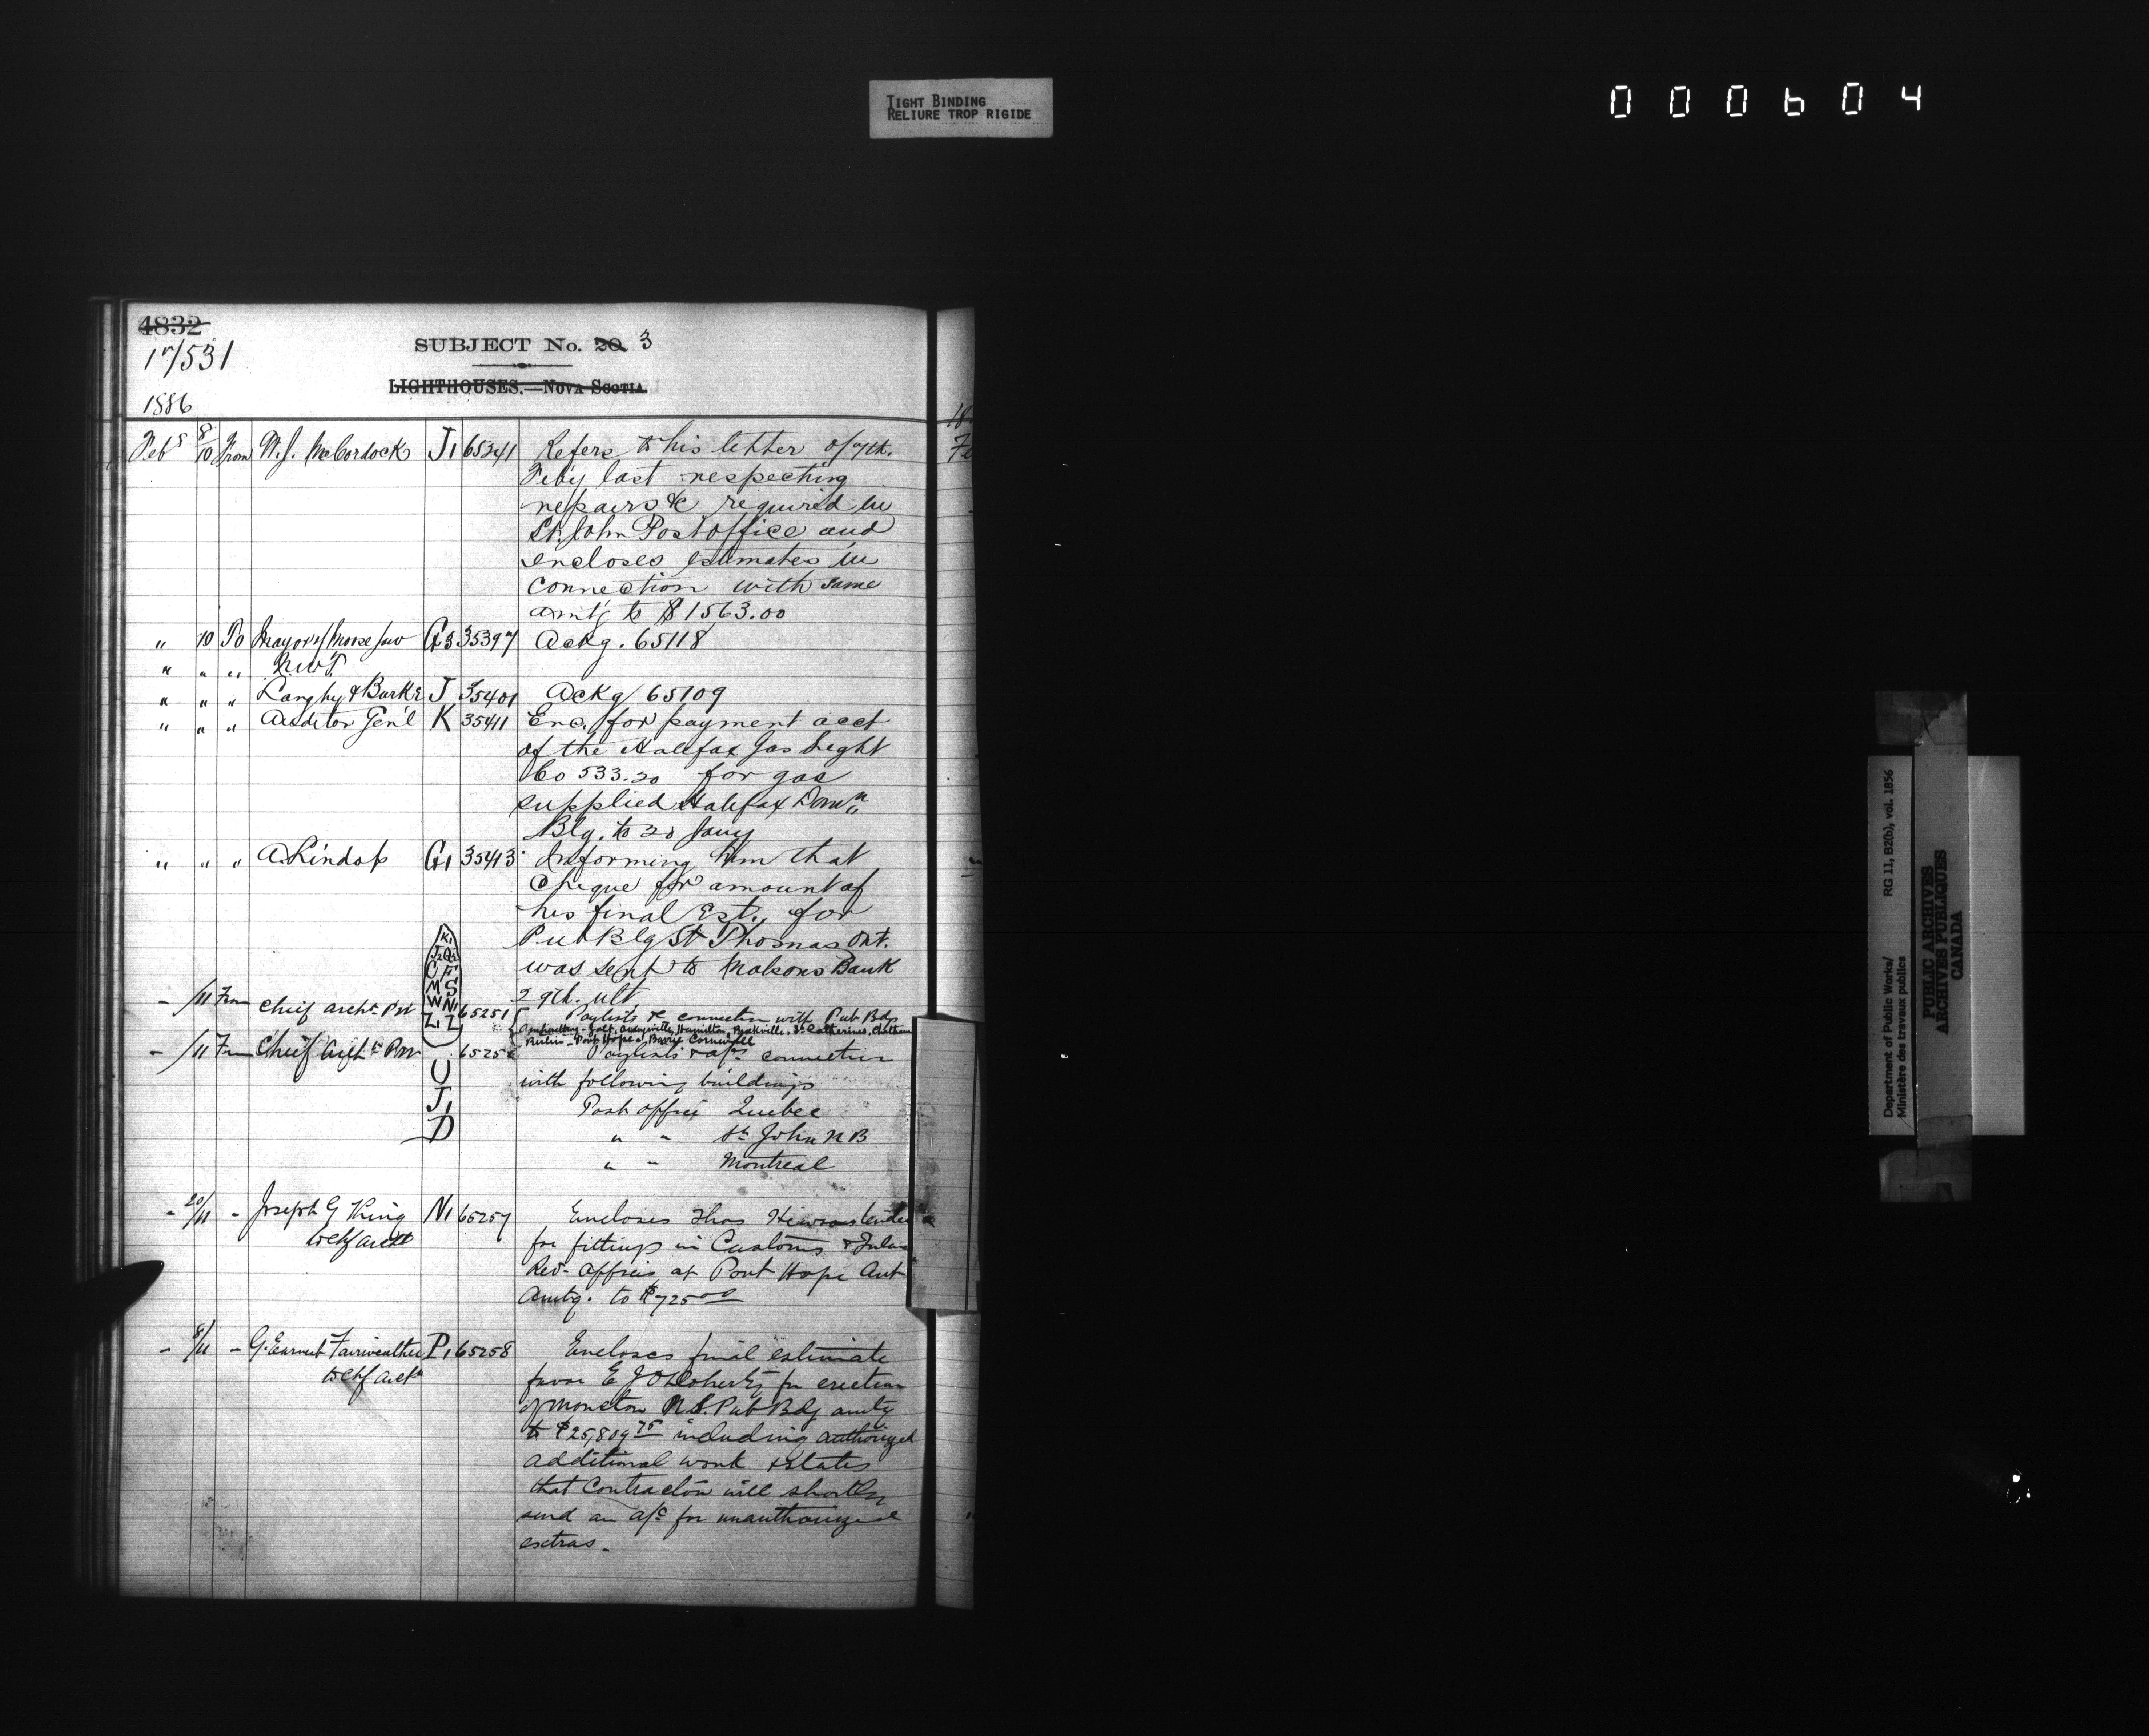 TIGHT BINDING
RELIURE TROP RIGIDE
000604
4832
17/531
SUBJECT No. 20 3
LIGHTHOUSES.—NOVA SCOTIA.
1886
Feby 8/10 From W. J. McCordock J1 65241 Refers to his letter of 7th.
Feb'y last respecting
repairs &c required in
St. John Post office and
encloses estimates in
connection with same
amt'g to $1563.00
" 10 To Mayor of Moose Jaw G3 35397 Ackg. 65118
" " " N.W.T.
" " " Langley & Burke J 35401 Ackg 65109
" " " Auditor Gen'l K 35411 Enc. for payment acct
of the Halifax Gas Light
Co 533.20 for gas
supplied Halifax Dom'n
Blg. to 20 Jany
" " " A. Lindop G1 35413 Informing him that
cheque for amount of
his final Est., for
Pub Blg St Thomas Ont.
was sent to Molsons Bank
29th. ult.
K1
C F
M S
W N1
Z1 Z
- /11 From Chief Archt. PW 65251 Paylists &c connection with Pub Bdgs
Galt, Hamilton, Brockville, St Catherines, Chatham
Berlin - Port Hope & Barrie Cornwall
- /11 From Chief Archt. PW 6525 Paylists & a/cs connection
with following buildings
U
J1
D
Post office Quebec
" " St. John N B
" " Montreal
- 20/11 - Joseph G King N1 65257 Encloses Thos Hewsons tender
to Chf Archt
for fittings in Customs &
Rev. offices at Port Hope Ont
Amtg. to $725.00
- 8/11 - G. Earnest Fairweather P1 65258 Encloses final estimate
to Chf Archt
favor E J O'Doherty for erection
of Moncton N.B. Pub Bdg amtg
to $25,809.75 including authorized
additional work & states
that Contractor will shortly
send an a/c for unauthorized
extras.
Department of Public Works/ RG 11, B2(b), vol. 1856
Ministère des travaux publics
PUBLIC ARCHIVES
ARCHIVES PUBLIQUES
CANADA